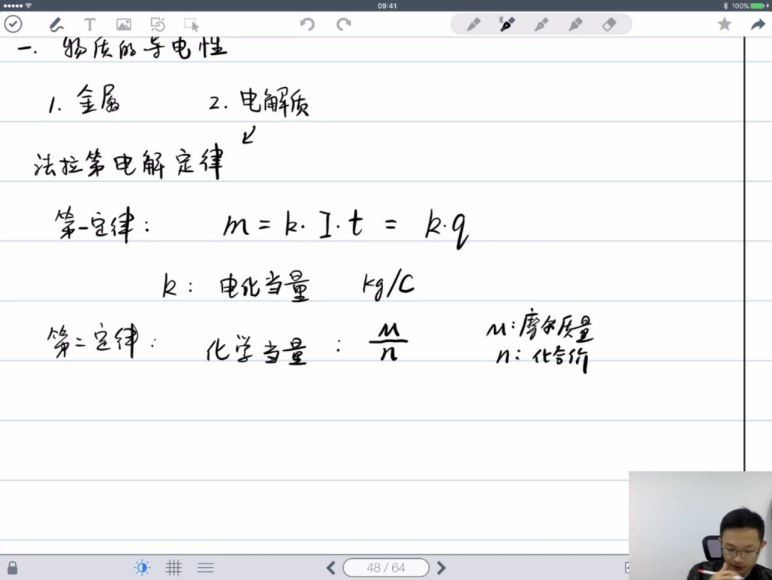 09:41
100%
T
一. 物质的导电性
1. 金属 2. 电解质
法拉第电解定律
第一定律: m = k · I · t = k · q
k: 电化当量 kg/C
第二定律: 化学当量: M/n M: 摩尔质量
n: 化合价
48 / 64